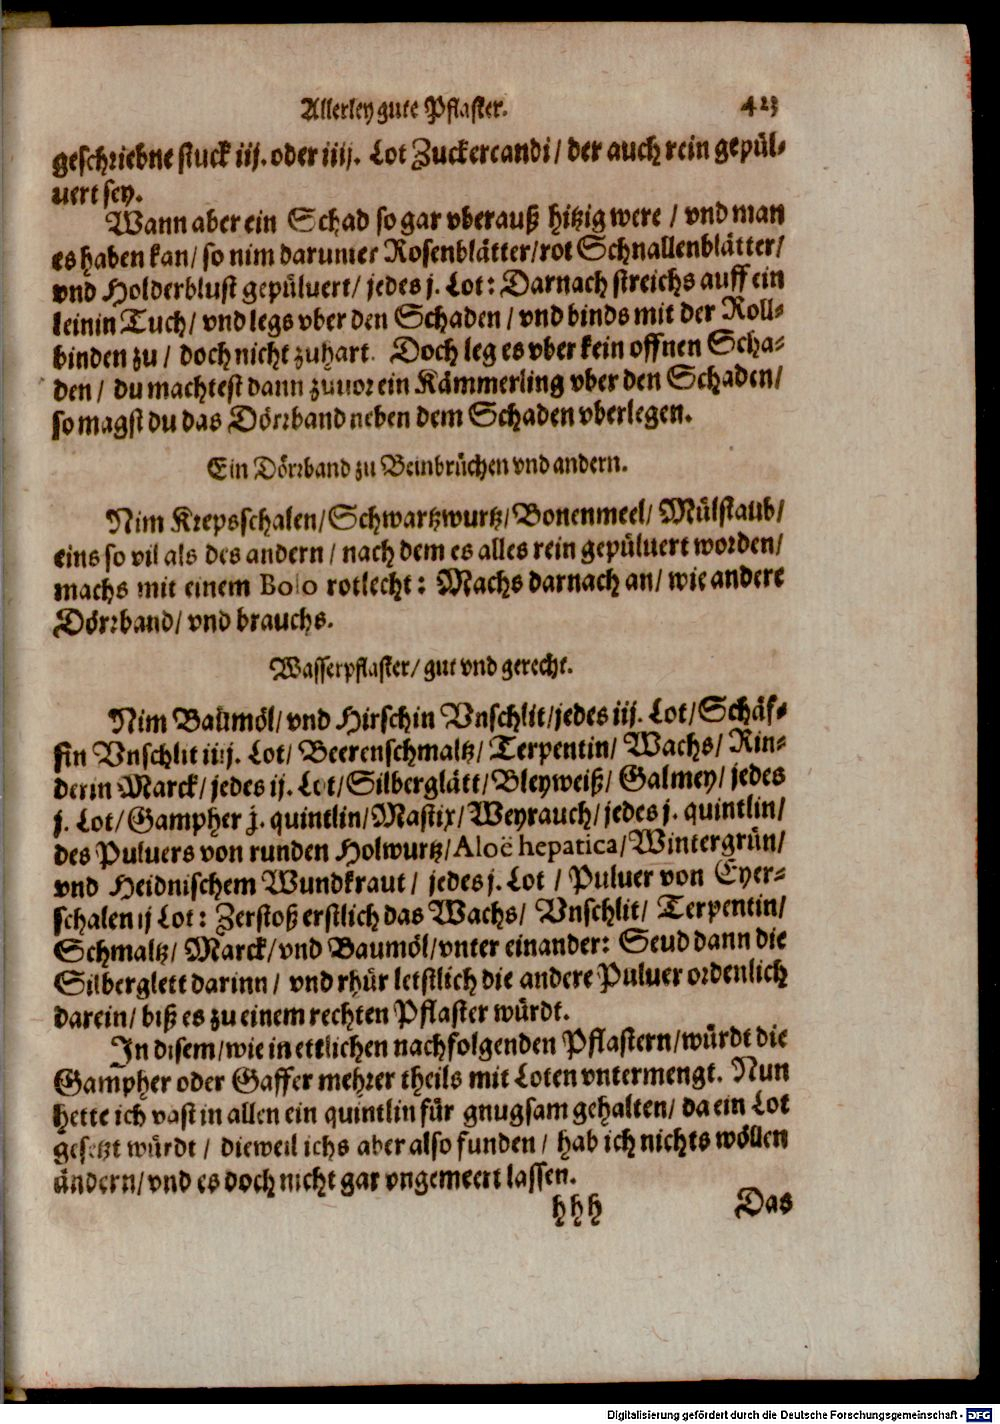 Allerley gute Pflaster. 423
geschriebne stuck iij. oder iiij. Lot Zuckercandi / der auch rein gepül⸗
uert sey.
Wann aber ein Schad so gar vberauß hitzig were / vnd man
es haben kan / so nim darunter Rosenblätter / rot Schnallenblätter /
vnd Holderblust gepüluert / jedes j. Lot: Darnach streichs auff ein
leinin Tuch / vnd legs vber den Schaden / vnd binds mit der Roll⸗
binden zu / doch nicht zuhart. Doch leg es vber kein offnen Scha⸗
den / du machtest dann zuuor ein Kämmerling vber den Schaden /
so magst du das Dörrband neben dem Schaden vberlegen.
Ein Dörrband zu Beinbrüchen vnd andern.
Nim Krepsschalen / Schwartzwurtz / Bonenmeel / Mülstaub /
eins so vil als des andern / nach dem es alles rein gepüluert worden /
machs mit einem Bolo rotlecht: Machs darnach an / wie andere
Dörrband / vnd brauchs.
Wasserpflaster / gut vnd gerecht.
Nim Baumöl / vnd Hirschin Vnschlit / jedes iij. Lot / Schäf⸗
fin Vnschlit iiij. Lot / Beerenschmaltz / Terpentin / Wachs / Rin⸗
derin Marck / jedes ij. Lot / Silberglätt / Bleyweiß / Galmey / jedes
j. Lot / Gampher j. quintlin / Mastix / Weyrauch / jedes j. quintlin /
des Puluers von runden Holwurtz / Aloë hepatica / Wintergrün /
vnd Heidnischem Wundkraut / jedes j. Lot / Puluer von Eyer⸗
schalen ij Lot: Zerstoß erstlich das Wachs / Vnschlit / Terpentin /
Schmaltz / Marck / vnd Baumöl / vnter einander: Seud dann die
Silberglett darinn / vnd rhür letstlich die andere Puluer ordenlich
darein / biß es zu einem rechten Pflaster würdt.
In disem / wie in ettlichen nachfolgenden Pflastern / würdt die
Gampher oder Gaffer mehrer theils mit Loten vntermengt. Nun
hette ich vast in allen ein quintlin für gnugsam gehalten / da ein Lot
gesetzt würdt / dieweil ichs aber also funden / hab ich nichts wöllen
ändern / vnd es doch nicht gar vngemeert lassen.
hhh Das
Digitalisierung gefördert durch die Deutsche Forschungsgemeinschaft - DFG